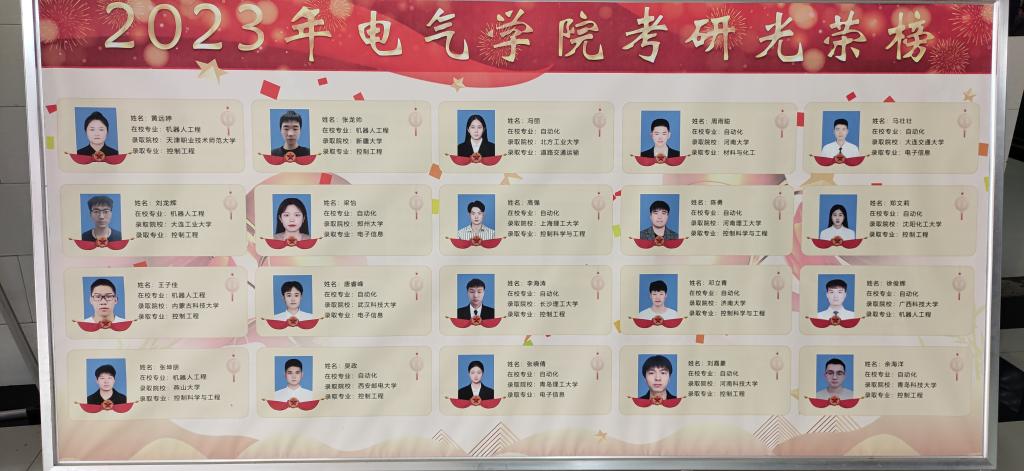 2023年电气学院考研光荣榜
姓名：黄远婷
在校专业：机器人工程
录取院校：天津职业技术师范大学
录取专业：控制工程
姓名：张龙帅
在校专业：机器人工程
录取院校：新疆大学
录取专业：控制工程
姓名：冯丽
在校专业：自动化
录取院校：北方工业大学
录取专业：道路交通运输
姓名：周雨聪
在校专业：自动化
录取院校：河南大学
录取专业：材料与化工
姓名：马壮壮
在校专业：自动化
录取院校：大连交通大学
录取专业：电子信息
姓名：刘龙辉
在校专业：机器人工程
录取院校：大连工业大学
录取专业：控制工程
姓名：梁怡
在校专业：自动化
录取院校：郑州大学
录取专业：电子信息
姓名：高强
在校专业：自动化
录取院校：上海理工大学
录取专业：控制科学与工程
姓名：陈勇
在校专业：自动化
录取院校：河南理工大学
录取专业：控制科学与工程
姓名：郑文莉
在校专业：自动化
录取院校：沈阳化工大学
录取专业：控制工程
姓名：王子佳
在校专业：机器人工程
录取院校：内蒙古科技大学
录取专业：控制工程
姓名：唐睿峰
在校专业：自动化
录取院校：武汉科技大学
录取专业：电子信息
姓名：李海涛
在校专业：自动化
录取院校：长沙理工大学
录取专业：控制工程
姓名：邓立青
在校专业：自动化
录取院校：济南大学
录取专业：控制科学与工程
姓名：徐俊辉
在校专业：自动化
录取院校：广西科技大学
录取专业：机器人工程
姓名：张坤朋
在校专业：机器人工程
录取院校：燕山大学
录取专业：控制科学与工程
姓名：吴政
在校专业：自动化
录取院校：西安邮电大学
录取专业：控制工程
姓名：张晓倩
在校专业：自动化
录取院校：青岛理工大学
录取专业：电子信息
姓名：刘嘉豪
在校专业：自动化
录取院校：河南科技大学
录取专业：控制工程
姓名：余海洋
在校专业：自动化
录取院校：青岛科技大学
录取专业：控制工程